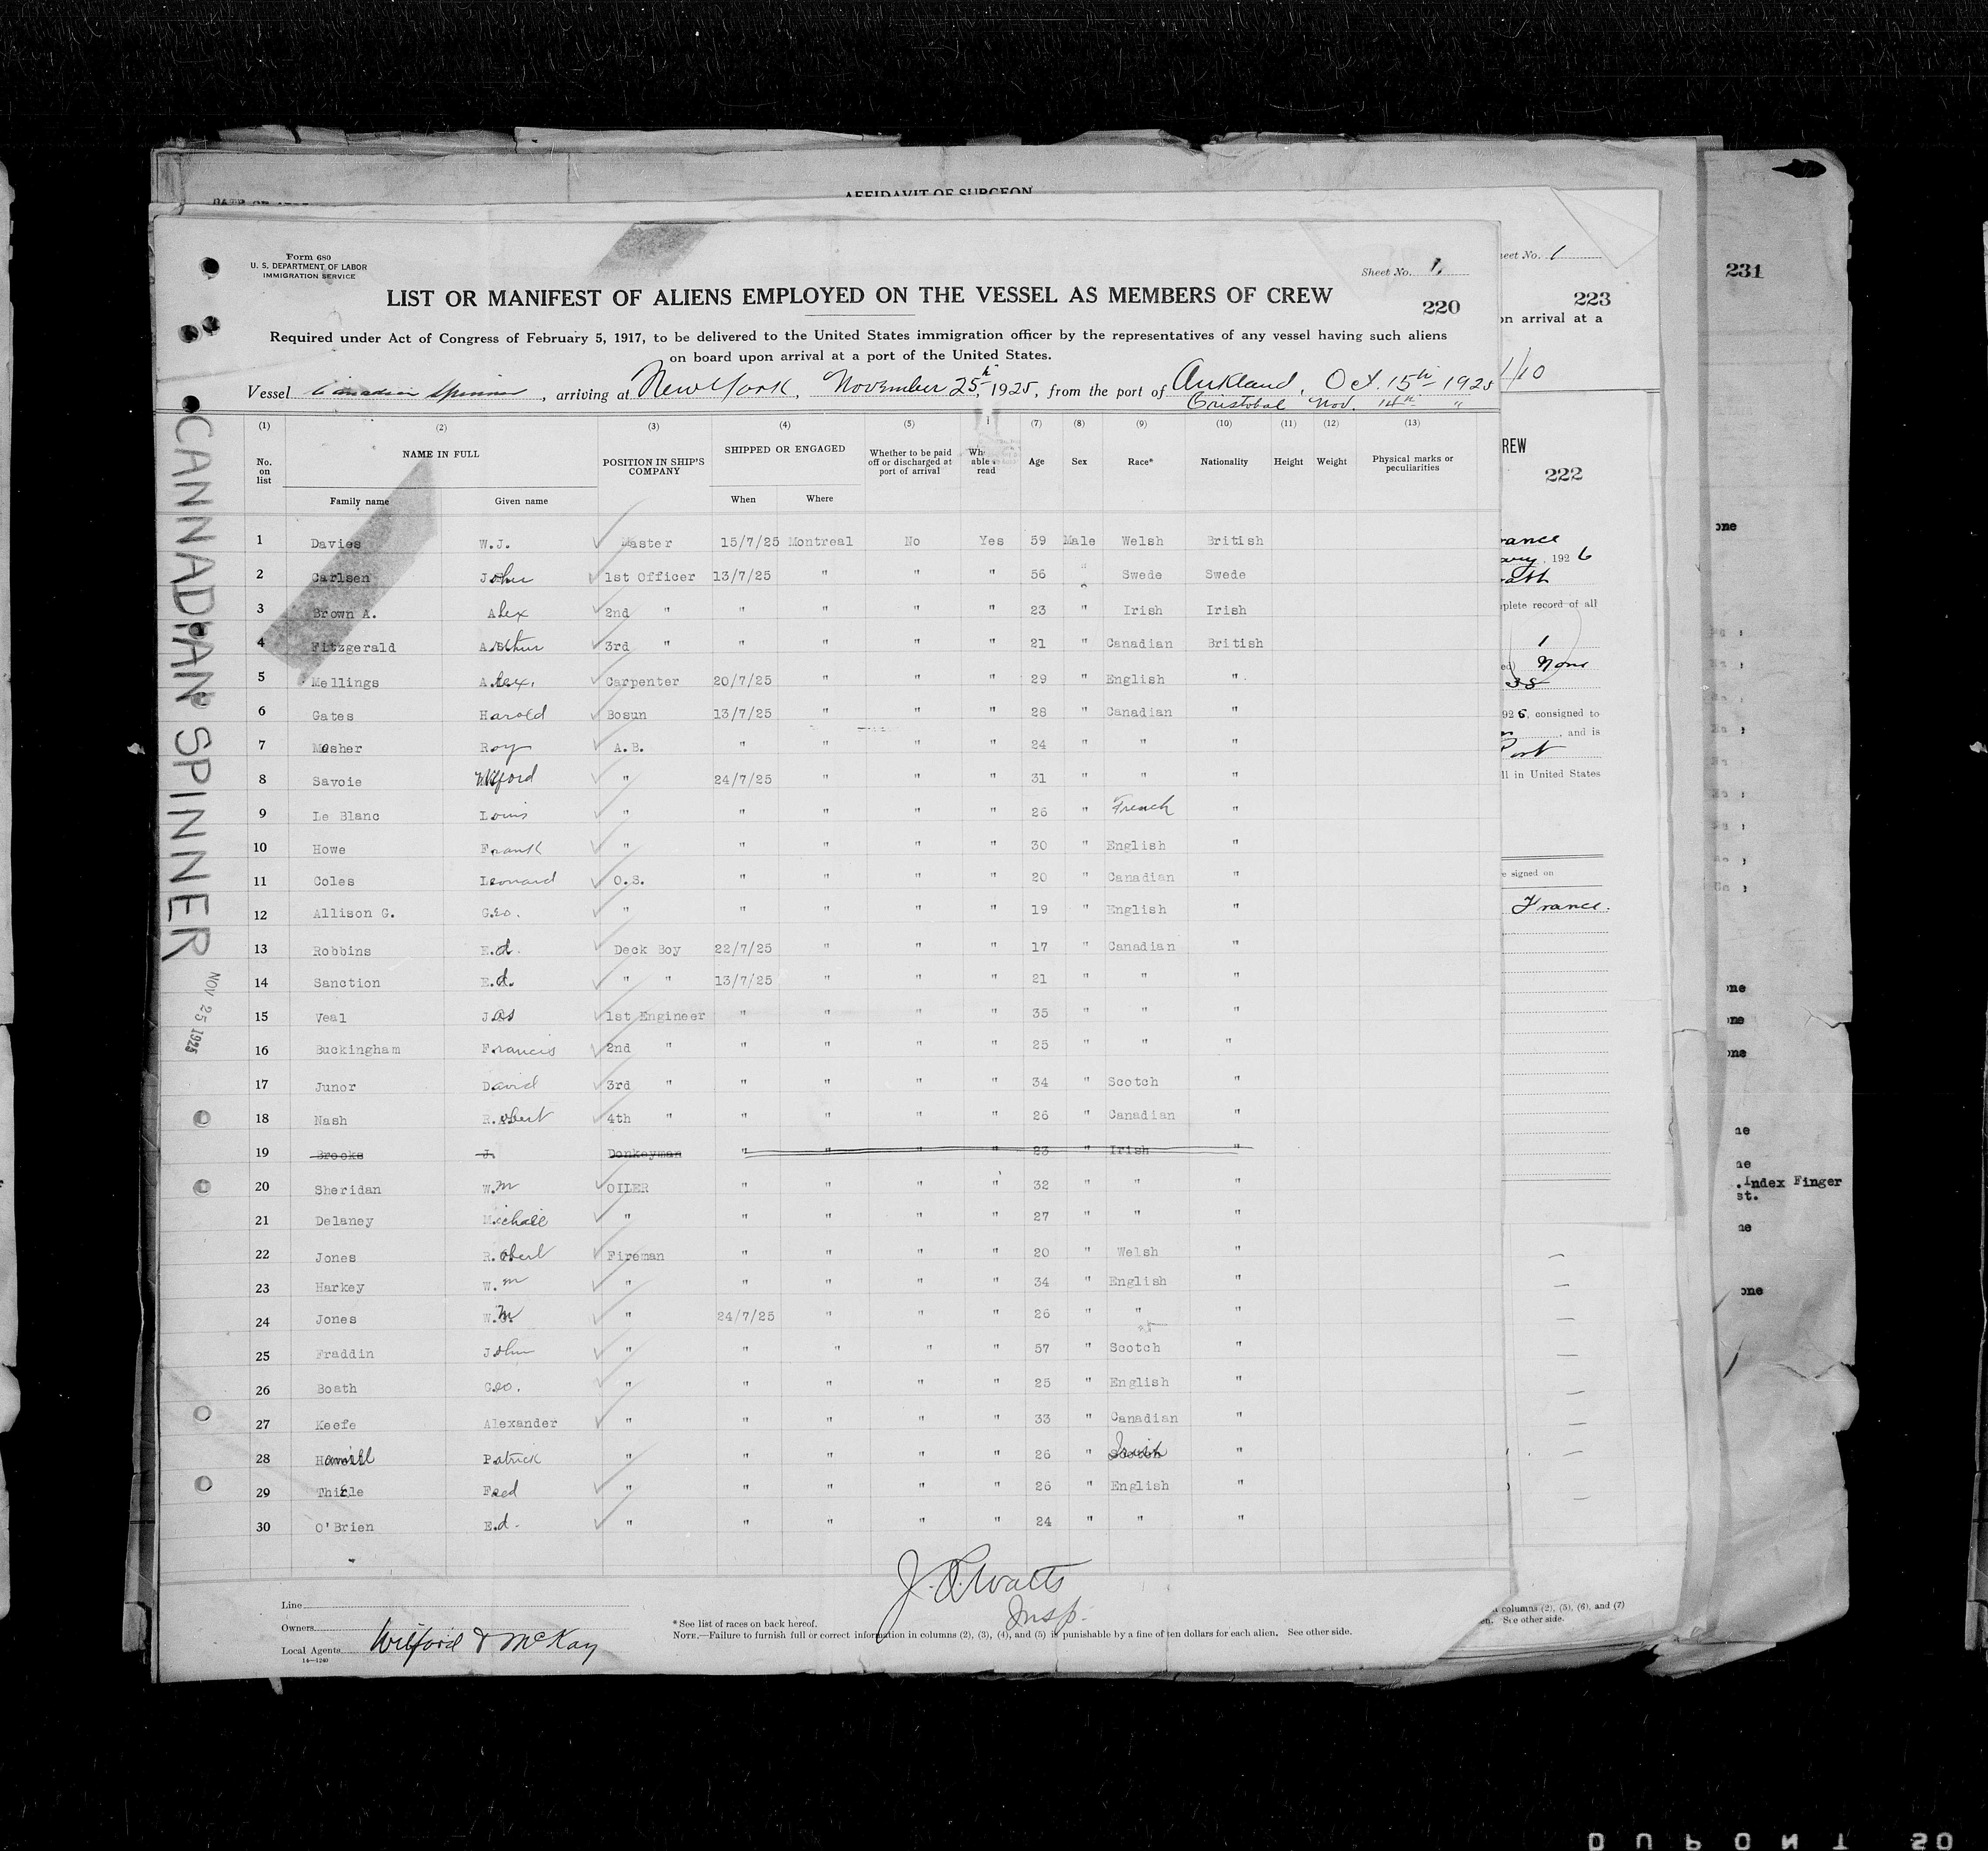 AFFIDAVIT OF SURGEON
Form 680
U. S. DEPARTMENT OF LABOR
IMMIGRATION SERVICE
Sheet No. 1.
LIST OR MANIFEST OF ALIENS EMPLOYED ON THE VESSEL AS MEMBERS OF CREW
220
Required under Act of Congress of February 5, 1917, to be delivered to the United States immigration officer by the representatives of any vessel having such aliens
on board upon arrival at a port of the United States.
Vessel Canadian Spinner, arriving at New York, November 25th, 1925, from the port of Aukland, Oct. 15th 1925
Cristobal Nov. 14th "
(1) (2) (3) (4) (5) (7) (8) (9) (10) (11) (12) (13)
No. on list NAME IN FULL Family name Given name POSITION IN SHIP'S COMPANY SHIPPED OR ENGAGED When Where Whether to be paid off or discharged at port of arrival Wh able read Age Sex Race* Nationality Height Weight Physical marks or peculiarities
1 Davies W.J. Master 15/7/25 Montreal No Yes 59 Male Welsh British
2 Carlsen John 1st Officer 13/7/25 " " " 56 " Swede Swede
3 Brown A. Alex 2nd " " " " " 23 " Irish Irish
4 Fitzgerald Arthur 3rd " " " " " 21 " Canadian British
5 Mellings Alex. Carpenter 20/7/25 " " " 29 " English "
6 Gates Harold Bosun 13/7/25 " " " 28 " Canadian "
7 Mosher Roy A.B. " " " " 24 " " "
8 Savoie Wilford " 24/7/25 " " " 31 " " "
9 Le Blanc Louis " " " " " 26 " French "
10 Howe Frank " " " " " 30 " English "
11 Coles Leonard O.S. " " " " 20 " Canadian "
12 Allison G. Geo. " " " " " 19 " English "
13 Robbins E.d. Deck Boy 22/7/25 " " " 17 " Canadian "
14 Sanction E.d. " " 13/7/25 " " " 21 " " "
15 Veal Jas 1st Engineer " " " " 35 " " "
16 Buckingham Francis 2nd " " " " " 25 " " "
17 Junor David 3rd " " " " " 34 " Scotch "
18 Nash R.obert 4th " " " " " 26 " Canadian "
19 Brooks J. Donkeyman " " " " 23 " Irish "
20 Sheridan W.m OILER " " " " 32 " " "
21 Delaney Michael " " " " " 27 " " "
22 Jones R.obert Fireman " " " " 20 " Welsh "
23 Harkey W.m " " " " " 34 " English "
24 Jones W.m " 24/7/25 " " " 26 " " "
25 Fraddin John " " " " " 57 " Scotch "
26 Boath Geo. " " " " " 25 " English "
27 Keefe Alexander " " " " " 33 " Canadian "
28 Hamill Patrick " " " " " 26 " Irish "
29 Thirle Fred " " " " " 26 " English "
30 O'Brien E.d. " " " " " 24 " " "
J. P. Watts
Insp.
Line
Owners
Local Agents Wilford & McKay
14—1240
*See list of races on back hereof.
NOTE.—Failure to furnish full or correct information in columns (2), (3), (4), and (5) is punishable by a fine of ten dollars for each alien. See other side.
CANNADIAN SPINNER
NOV 25 1925
eet No. 1
223
on arrival at a
1/10
REW
222
rance
ary, 1926
plete record of all
1
ed) None
38
926, consigned to
, and is
Port
ll in United States
e signed on
France.
columns (2), (5), (6), and (7)
en. See other side.
231
one
one
one
one
ne
ne
. Index Finger
st.
ne
one
DUPONT SO